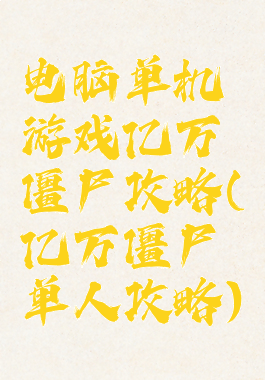 电脑单机
游戏亿万
僵尸攻略(
亿万僵尸
单人攻略)